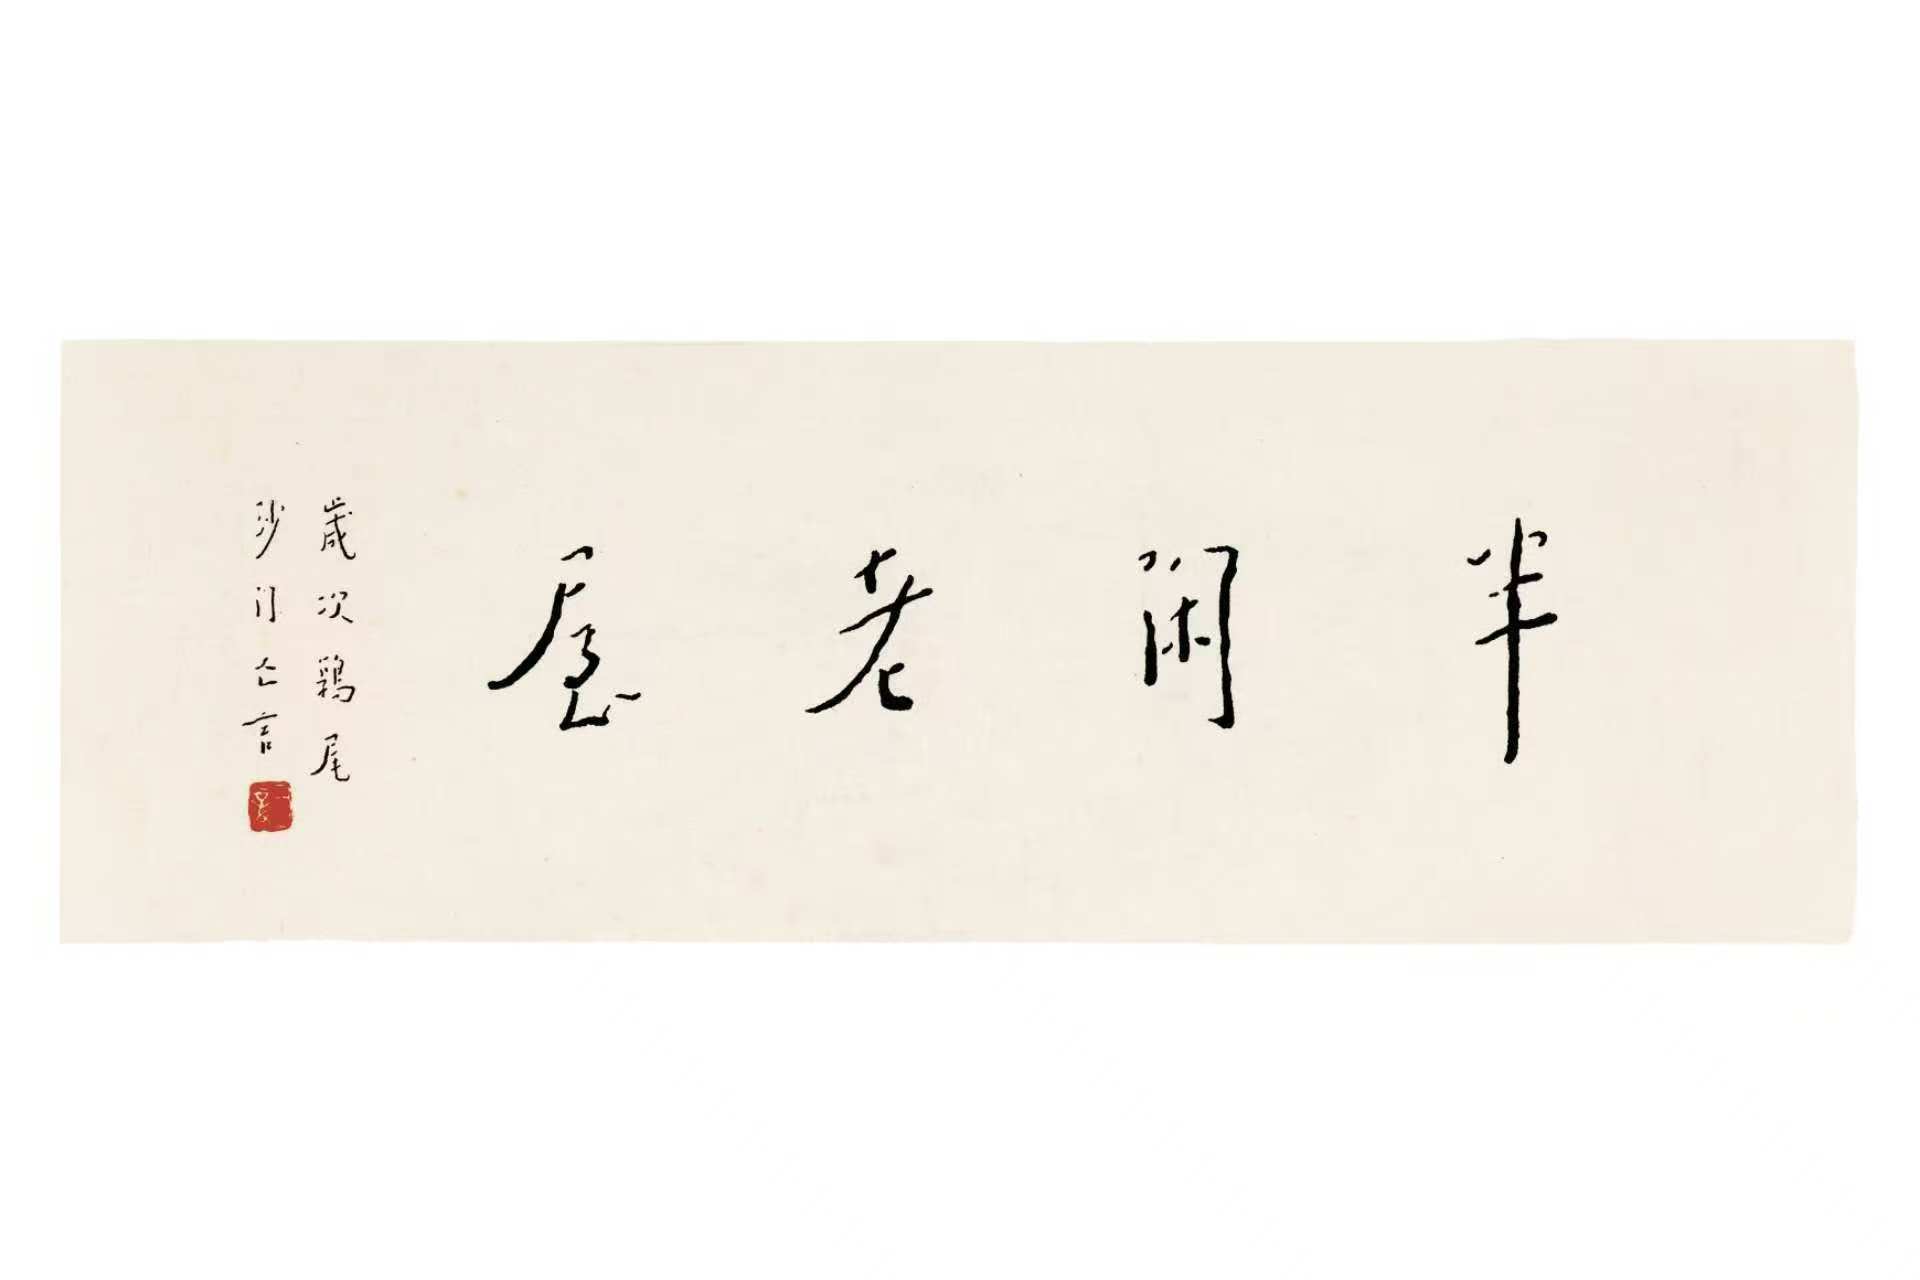 半閑老屋
歲次鶉尾
沙門亡言